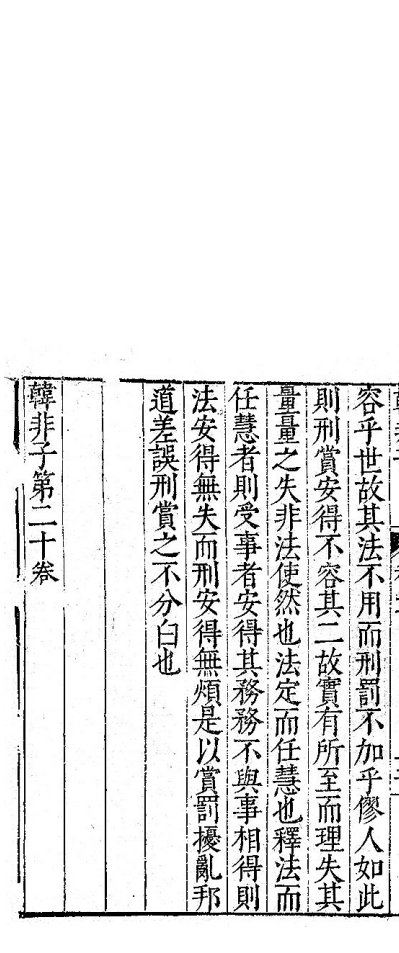 容乎世故其法不用而刑罰不加乎僇人如此
則刑賞安得不容其二故實有所至而理失其
量量之失非法使然也法定而任慧也釋法而
任慧者則受事者安得其務務不與事相得則
法安得無失而刑安得無煩是以賞罰擾亂邦
道差誤刑賞之不分白也
韓非子第二十卷